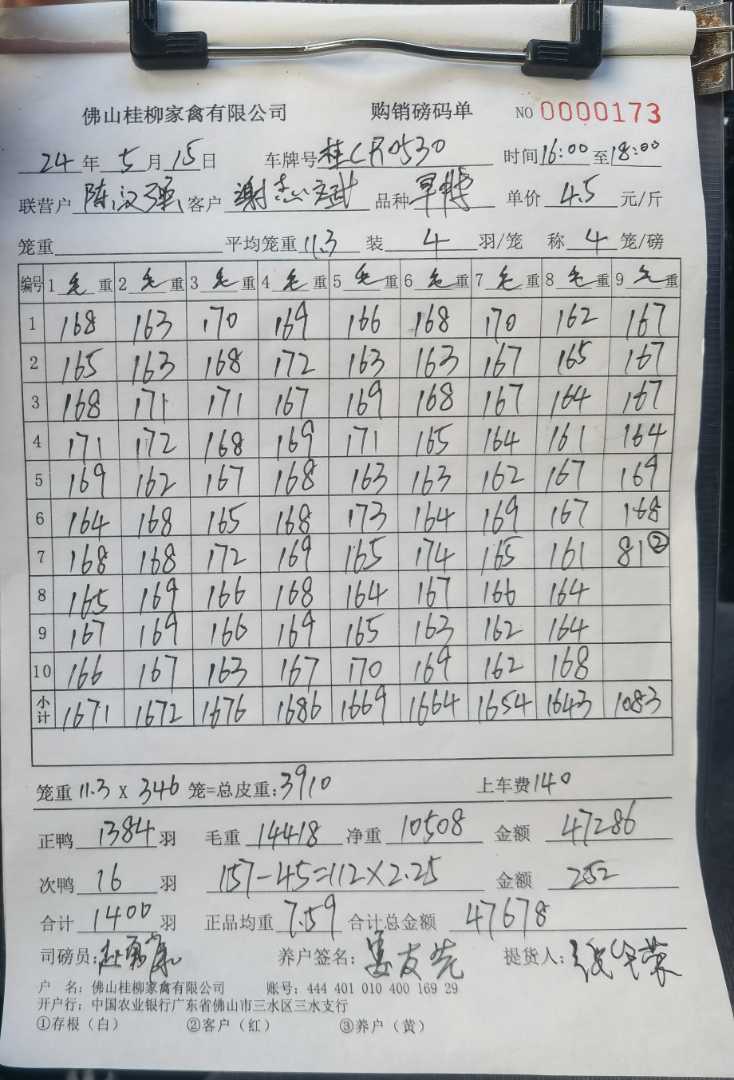 佛山桂柳家禽有限公司 购销磅码单 NO 0000173
24年5月15日 车牌号桂CR0530 时间16:00至18:00
联营户 陈汉强 客户 谢志斌 品种 早特 单价 4.5 元/斤
笼重 平均笼重11.3 装 4 羽/笼 称 4 笼/磅
编号 1毛重 2毛重 3毛重 4毛重 5毛重 6毛重 7毛重 8毛重 9毛重
1 168 163 170 169 166 168 170 162 167
2 165 163 168 172 163 163 167 165 167
3 168 171 171 167 169 168 167 164 167
4 171 172 168 169 171 165 164 161 164
5 169 162 167 168 163 163 162 167 169
6 164 168 165 168 173 164 169 167 168
7 168 168 172 169 165 174 165 161 81②
8 165 169 166 168 164 167 166 164
9 167 169 166 169 165 163 162 164
10 166 167 163 167 170 169 162 168
小计 1671 1672 1676 1686 1669 1664 1654 1643 1083
笼重 11.3 X 346 笼=总皮重:3910 上车费140
正鸭 1384 羽 毛重 14418 净重 10508 金额 47286
次鸭 16 羽 157-45=112×2.25 金额 252
合计 1400 羽 正品均重 7.59 合计总金额 47678
司磅员: 养户签名: 提货人:
户 名: 佛山桂柳家禽有限公司 账号: 444 401 010 400 169 29
开户行: 中国农业银行广东省佛山市三水区三水支行
①存根(白) ②客户(红) ③养户(黄)